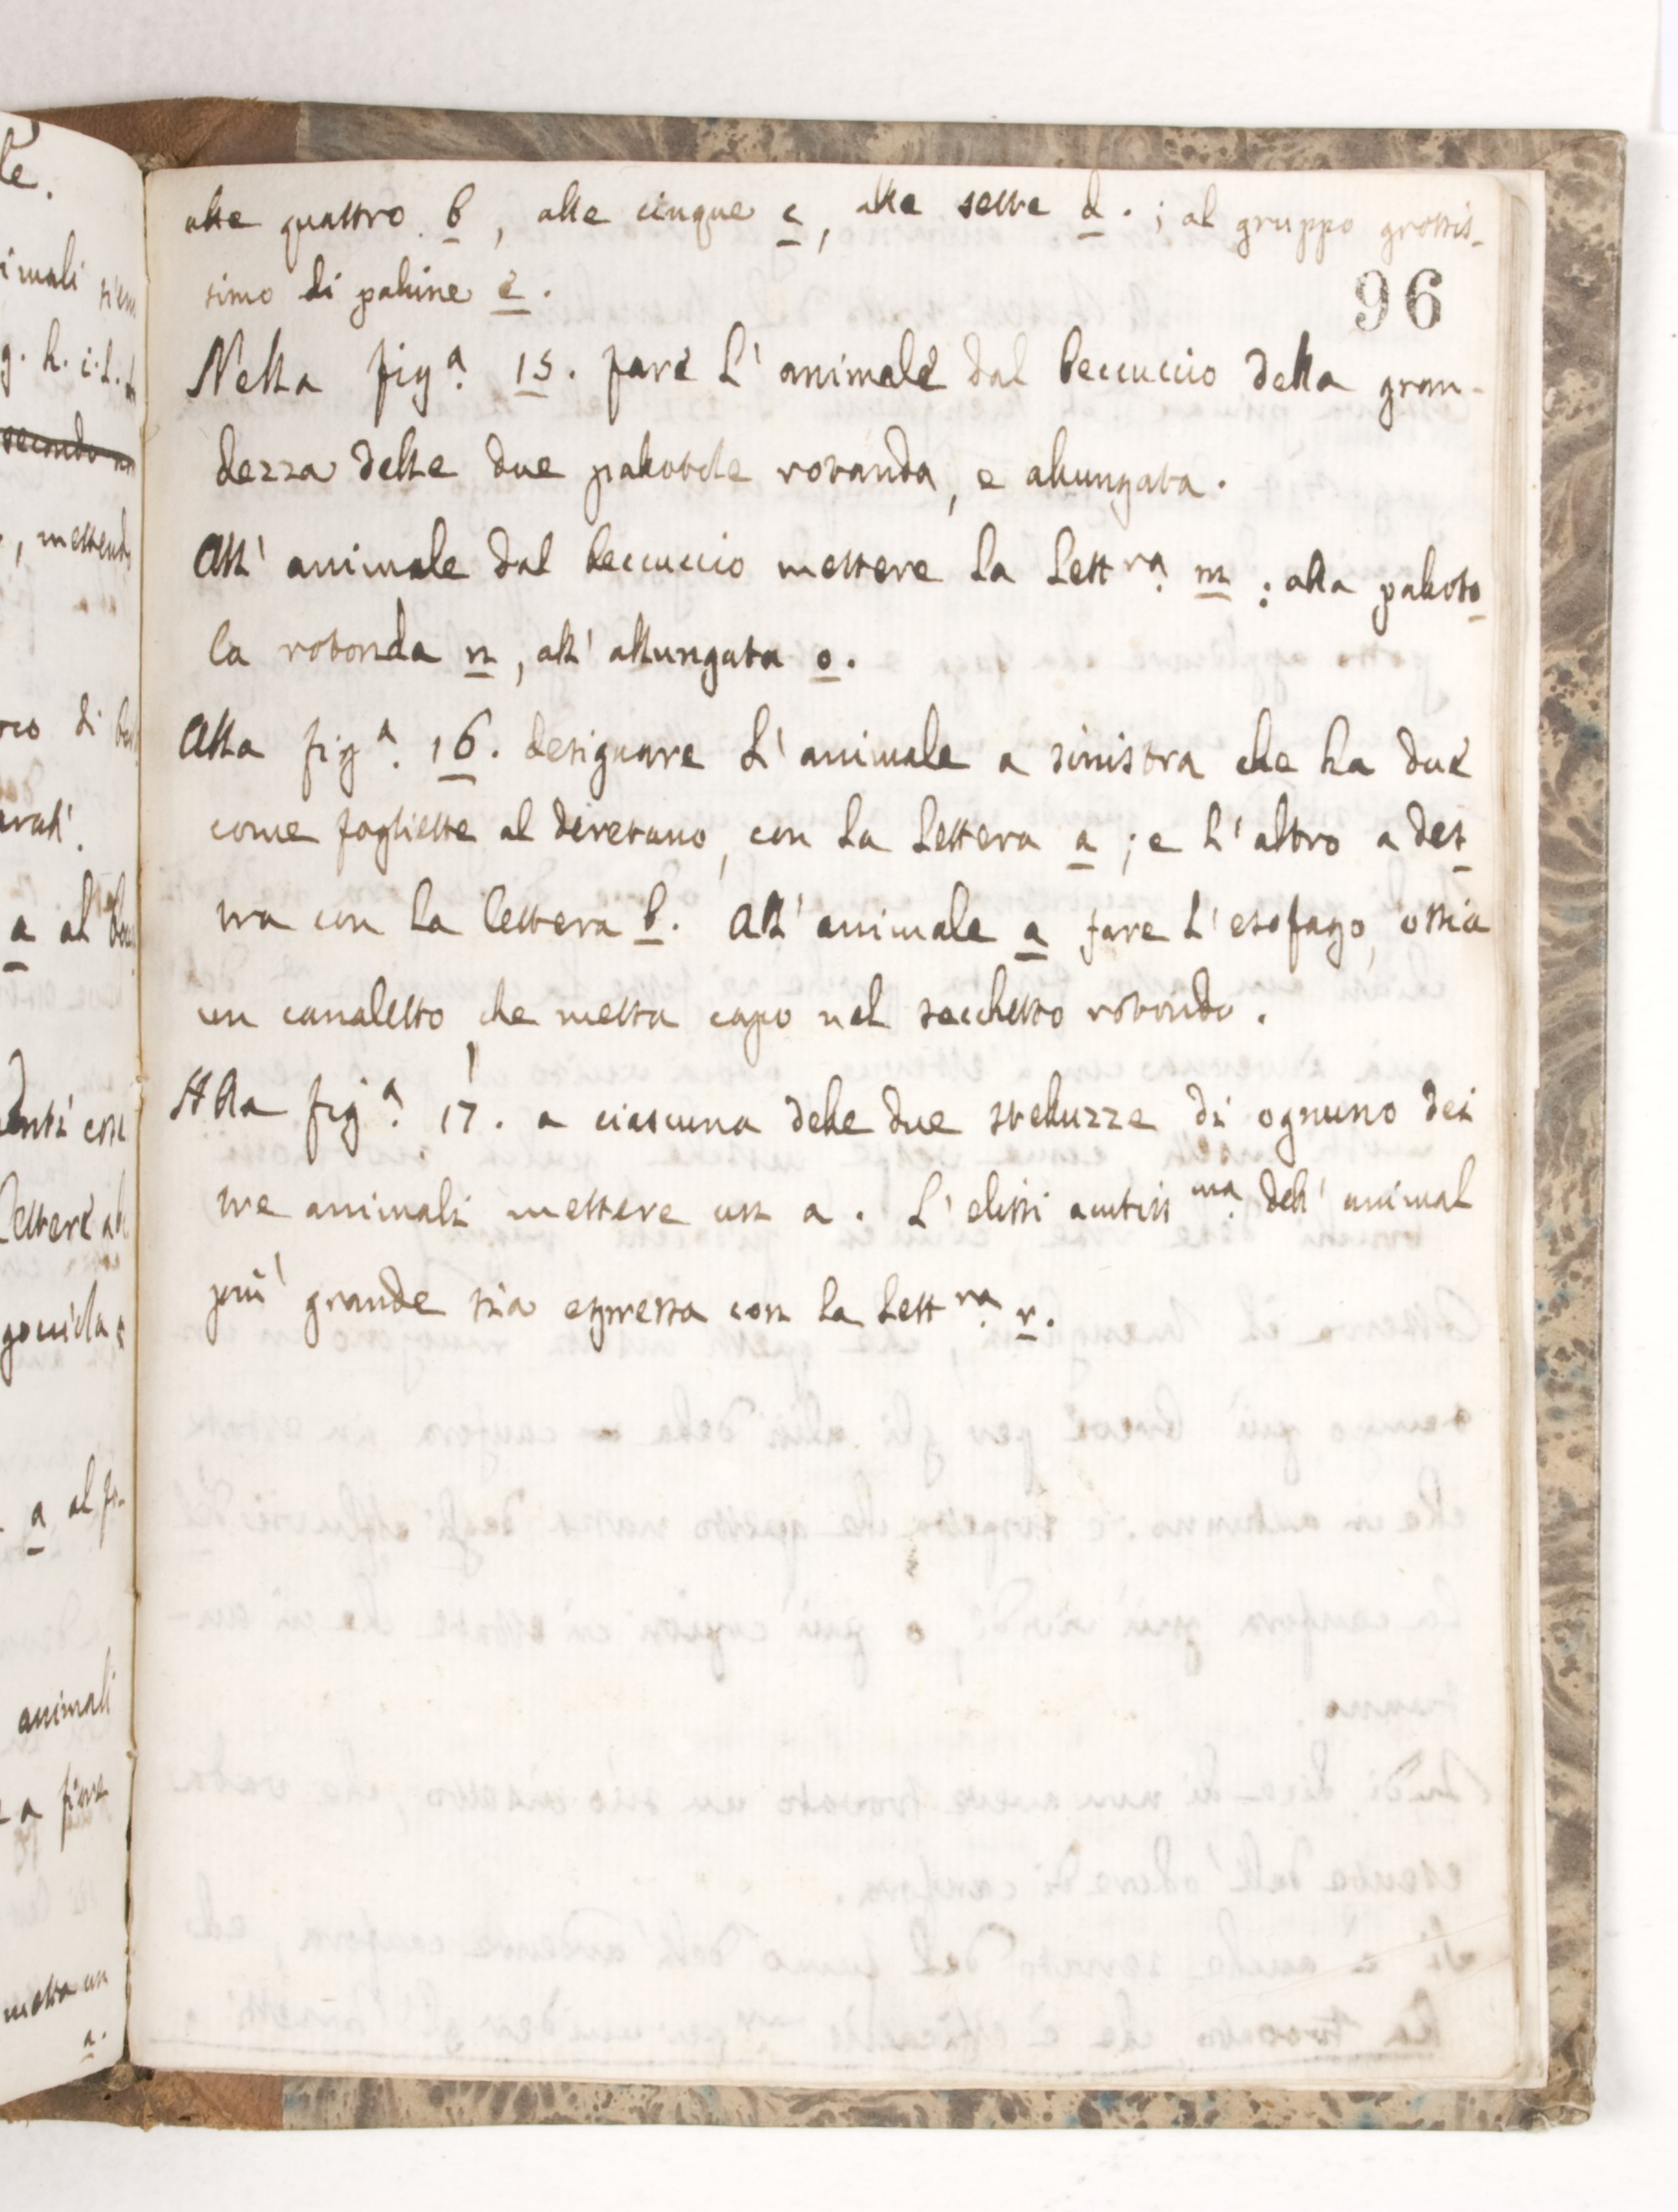 alle quattro b, alle cinque c, alle sette d.; al gruppo grossis-
simo di palline e.
96
Nella fig.ª 15. fare l'animale dal beccuccio della gran-
dezza delle due pallottole rotonda, e allungata.
All'animale dal beccuccio mettere la lett.ra m: alla palloto-
la rotonda n, all'allungata o.
Alla fig.ª 16. designare l'animale a sinistra che ha due
come fogliette al deretano, con la lettera a; e l'altro a des-
tra con la lettera b. All'animale a fare l'esofago, ossia
un canaletto, che metta capo nel sacchetto rotondo.
Alla fig.ª 17. a ciascuna delle due stelluzze di ognuno dei
tre animali mettere un a. L'elissi acutiss.ma dell'animal
più grande sia espressa con la lett.ra r.